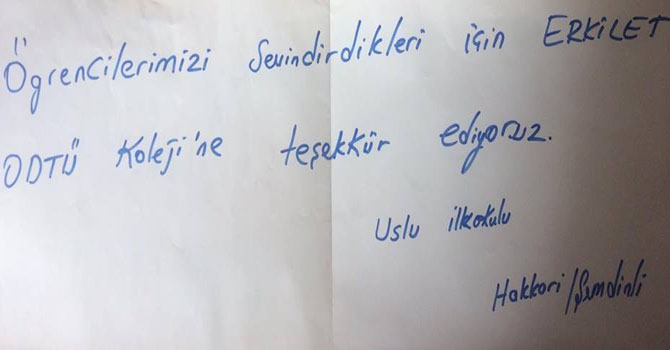 Öğrencilerimizi Sevindirdikleri için ERKİLET
ODTÜ Koleji'ne teşekkür ediyoruz.
Uslu ilkokulu
Hakkari/Şemdinli